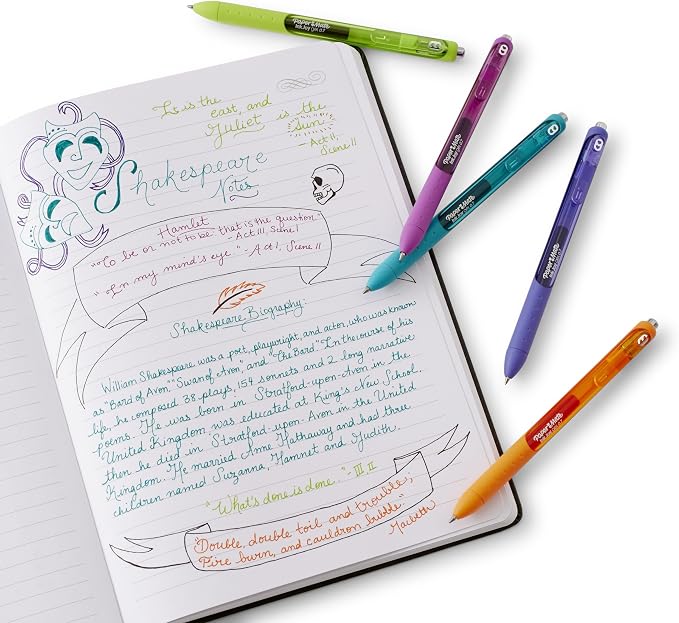 It is the
east, and
Juliet is the
Sun
- Act II,
Scene II
Shakespeare
Notes
Hamlet
"To be or not to be that is the question"
- Act III, Scene I
"In my mind's eye" - Act I, Scene II
Shakespeare Biography:
William Shakespeare was a poet, playwright, and actor, who was known
as "Bard of Avon" "Swan of Avon", and "The Bard". In the course of his
life, he composed 38 plays, 154 sonnets and 2 long narrative
poems. He was born in Stratford-upon-Avon in the
United Kingdom, was educated at King's New School,
then he died in Stratford-upon-Avon in the United
Kingdom. He married Anne Hathaway and had three
children named Suzanna, Hamnet and Judith.
"What's done is done.." - III, II
"Double, double toil and trouble;
Fire burn, and cauldron bubble."
Macbeth
Paper Mate
InkJoy Gel 0.7
Paper Mate
InkJoy Gel 0.7
Paper Mate
InkJoy Gel 0.7
Paper Mate
InkJoy Gel 0.7
Paper Mate
InkJoy Gel 0.7